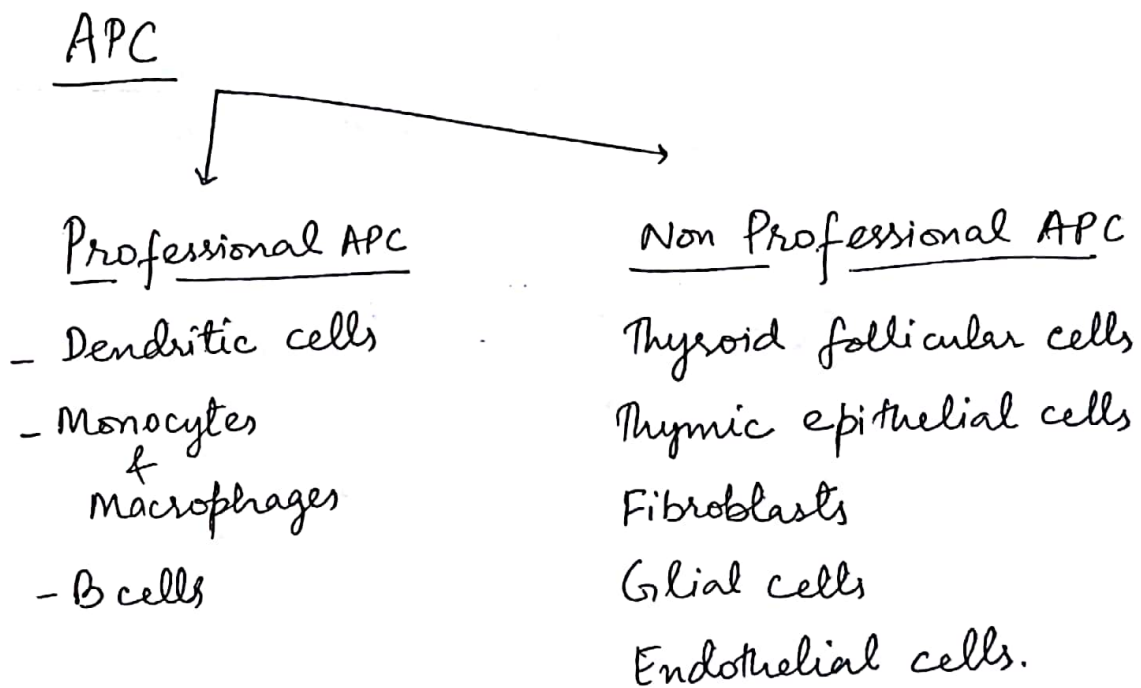 APC
Professional APC
- Dendritic cells
- Monocytes
&
Macrophages
- B cells
Non Professional APC
Thyroid follicular cells
Thymic epithelial cells
Fibroblasts
Glial cells
Endothelial cells.